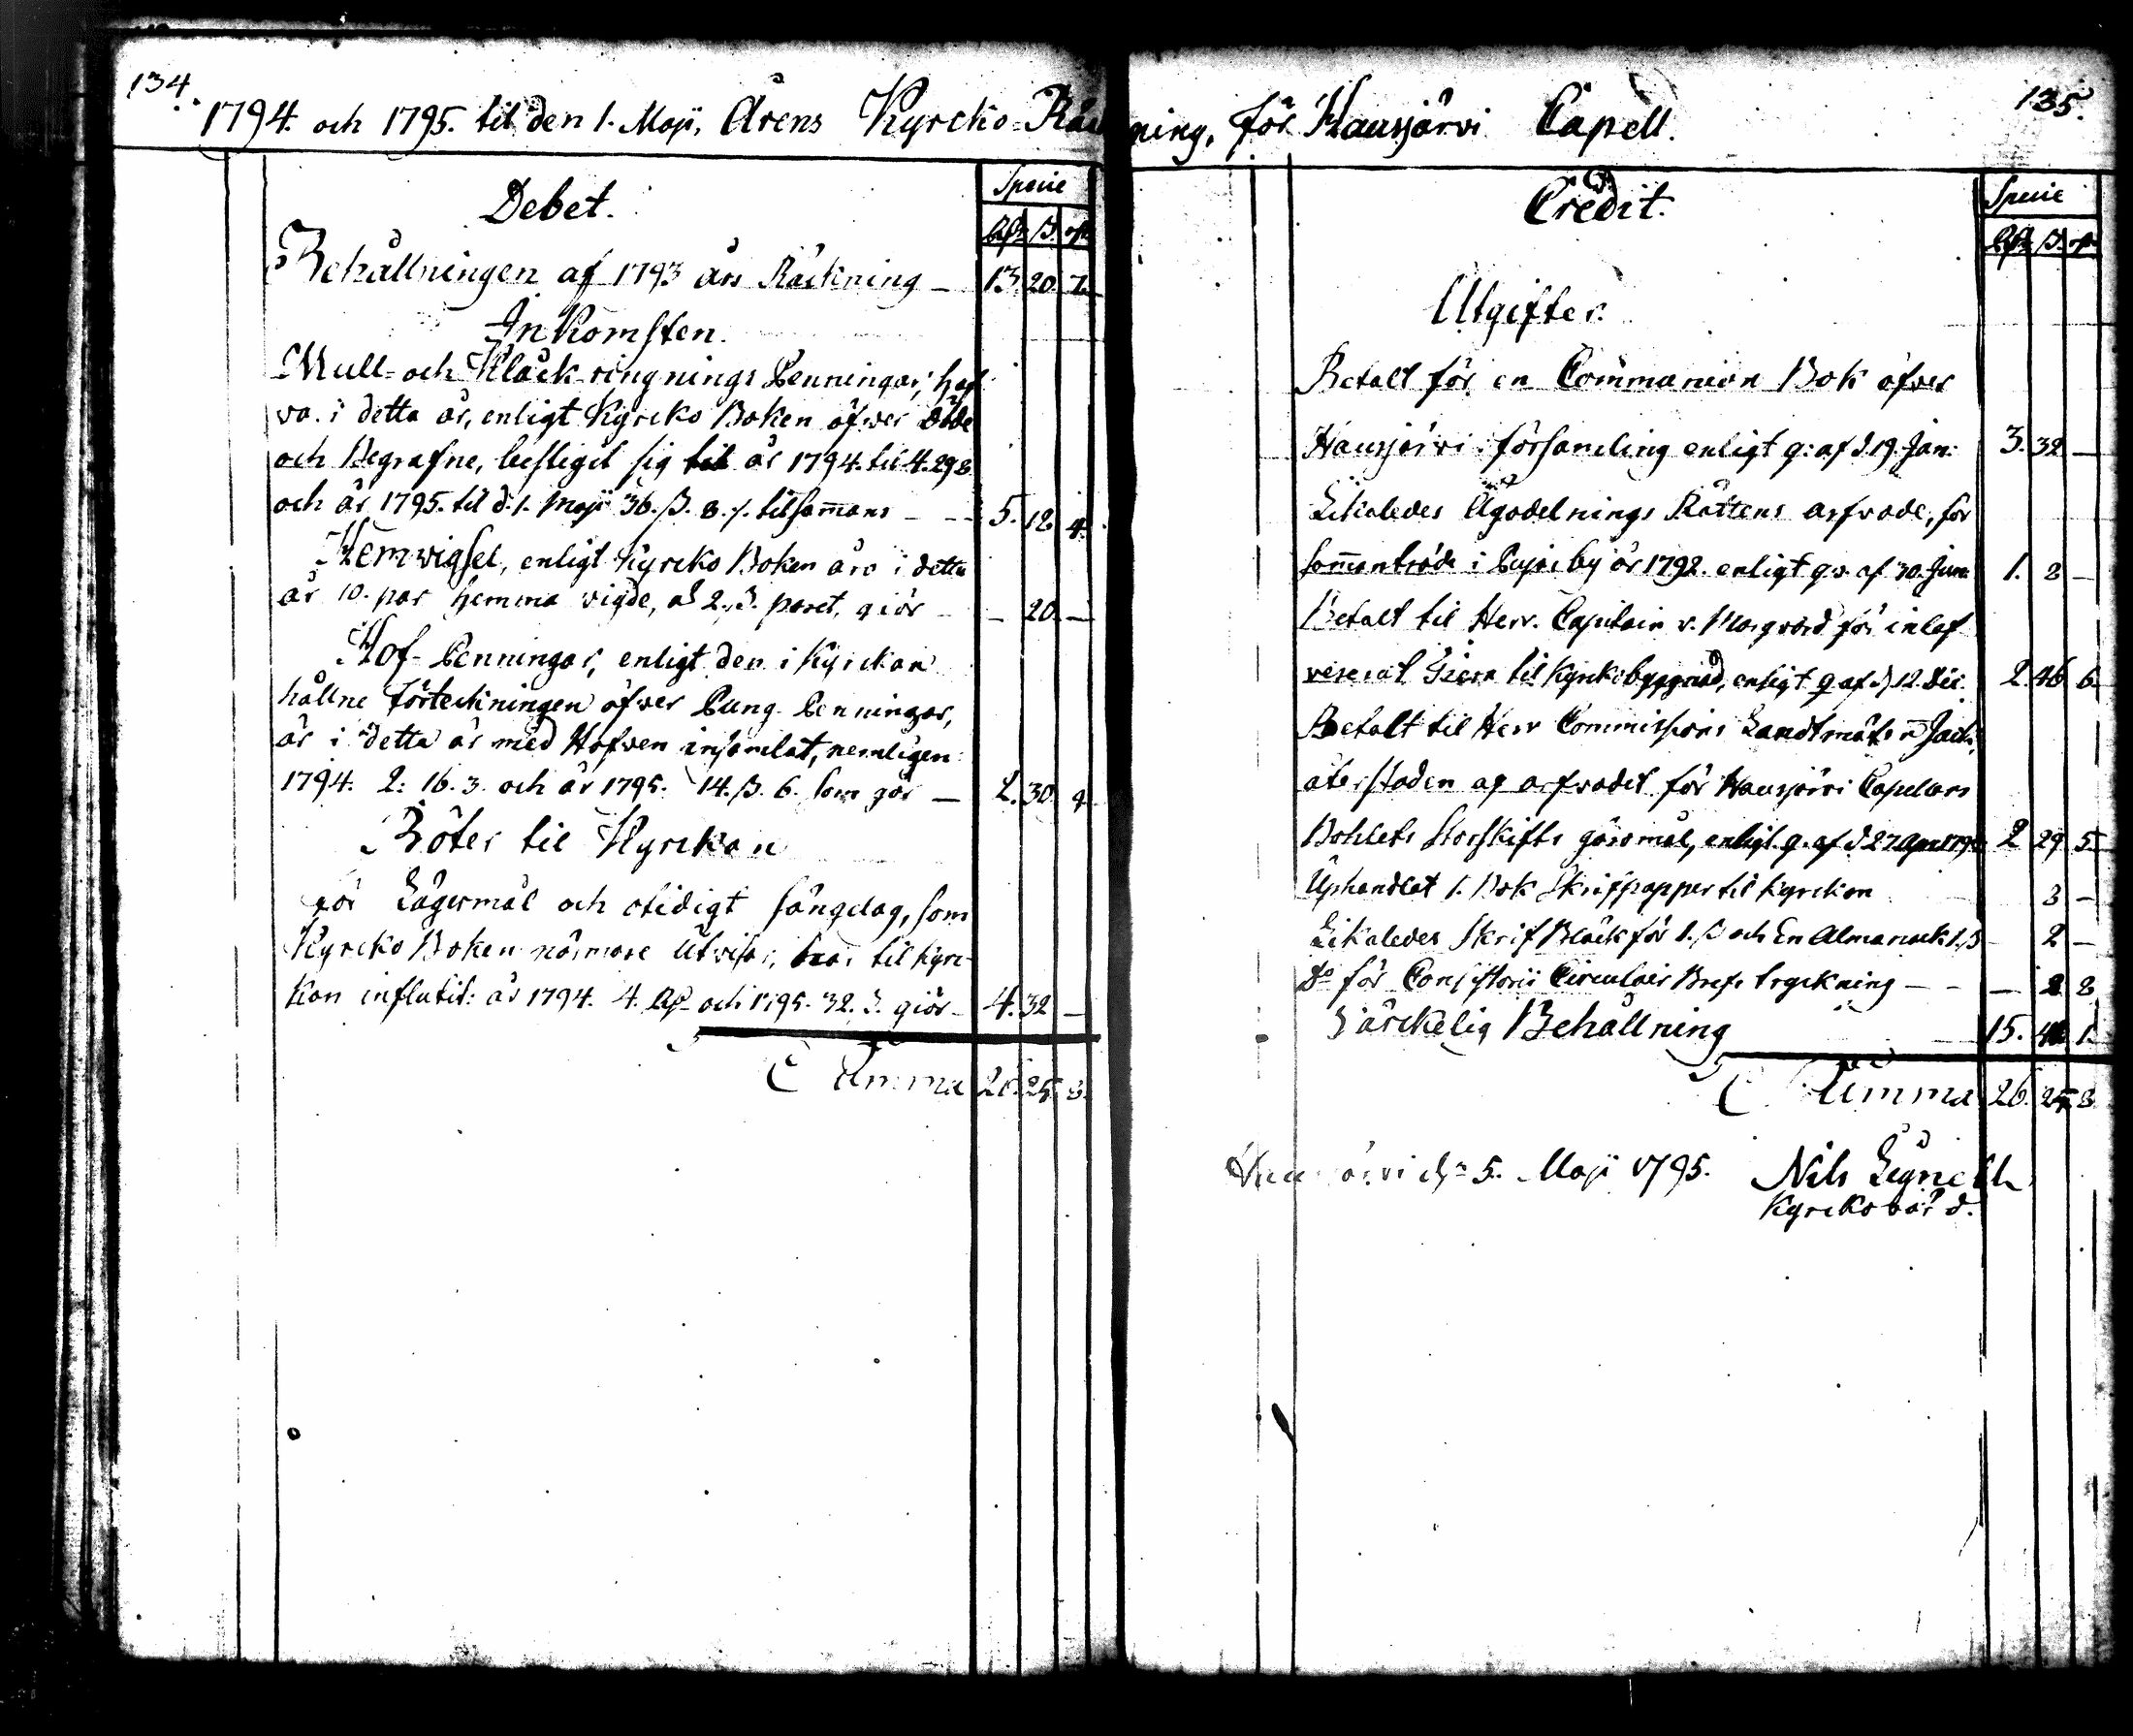 134.
1794. och 1795. til den 1. Maji, Årens Kyrcko-Räck
Debet.
Specie
Rdr ß. rst
Behållningen af 1793 års Räckning — 13. 20. 7.
Inkomsten.
Mull- och Klåckringnings Penningar, haf
va i detta år, enligt Kyrcko Boken öfver döde
och Begrafne, bestigit sig til år 1794. til 4. 29 8.
och år 1795. til d. 1. Maji 36. ß. 8. r. tilsam̄ans — 5. 12. 4.
Hemvigsel, enligt Kyrcko Boken äro i detta
år 10. par hemma vigde, à 2. ß. paret, giör — — 20. —
Hof-Penningar, enligt den i Kyrckan
hållne förteckningen öfver Pung Penningar,
är i detta år med Hofven insamlat, nemligen:
1794. 2: 16. 3. och år 1795. 14. ß. 6. som gör — 2. 30. 9.
Böter til Kyrckan
för Lägersmål och otidigt sängelag, som
Kyrcko Boken närmare utvisar, har til Kyrc-
kan influtit: år 1794. 4. Rd och 1795. 32. ß. giör — 4. 32 —
Summa 26. 25. 8.
135.
ning, för Hausjärvi Capell.
Credit.
Specie
Rdr ß. rst
Utgifter.
Betalt för en Communion Bok öfver
Hausjärvi församling enligt q: af d. 19. Jan: 3. 32 —
Likaledes Ägodelnings Rättens arfvode, för
sam̄anträde i by år 1792. enligt q:o af 30. Jun. 1. 8 —
Betalt til Herr. Capitain v. Morgvard för inlef
vererat til Kyrckobyggnad, enligt q af d. 12. Dec. 2. 46 6.
Betalt til Herr Commissions Landtmät:n
återstoden af arfvodet för Hausjärvi Capellans
Bohlets Storskifts göromål, enligt q. af d 27 April 2 29 5.
Uphandlat 1. Bok Skrifpapper til Kyrckan 8 —
Likaledes Skrif Bläck för 1. ß och En Almanack 1. ß — 2 —
d:o för Consistorii Circulair Brefs tryckning — — 2 8
Särckelig Behållning 15. 41. 1.
Summa 26. 25. 8
Hausjärvi d:n 5. Maji 1795. Nils
Kyrckovärd.